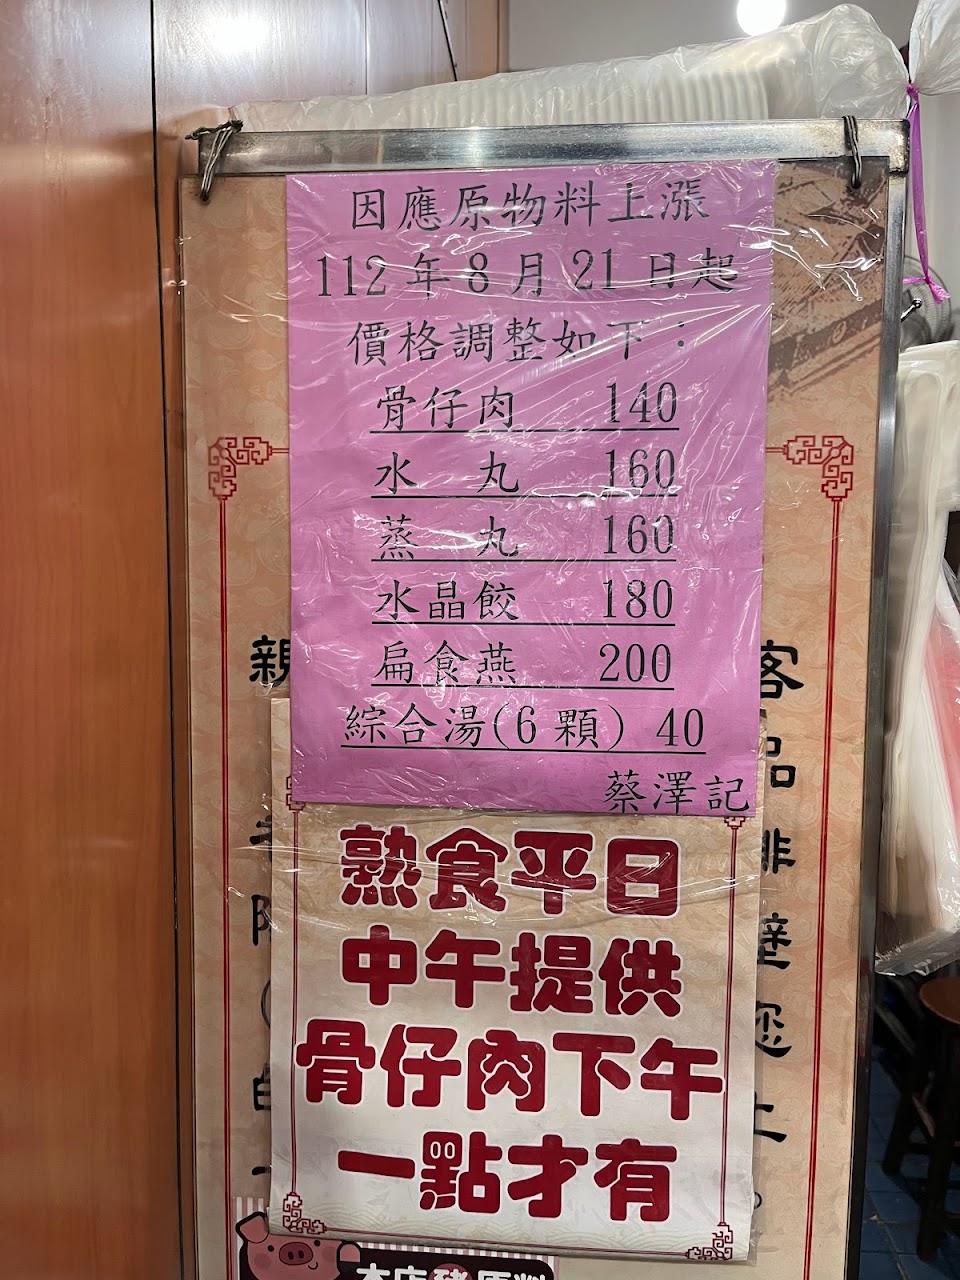 因應原物料上漲
112年8月21日起
價格調整如下：
骨仔肉 140
水 丸 160
蒸 丸 160
水晶餃 180
扁食燕 200
綜合湯(6顆) 40
蔡澤記
熟食平日
中午提供
骨仔肉下午
一點才有
親
客
本店豬原料